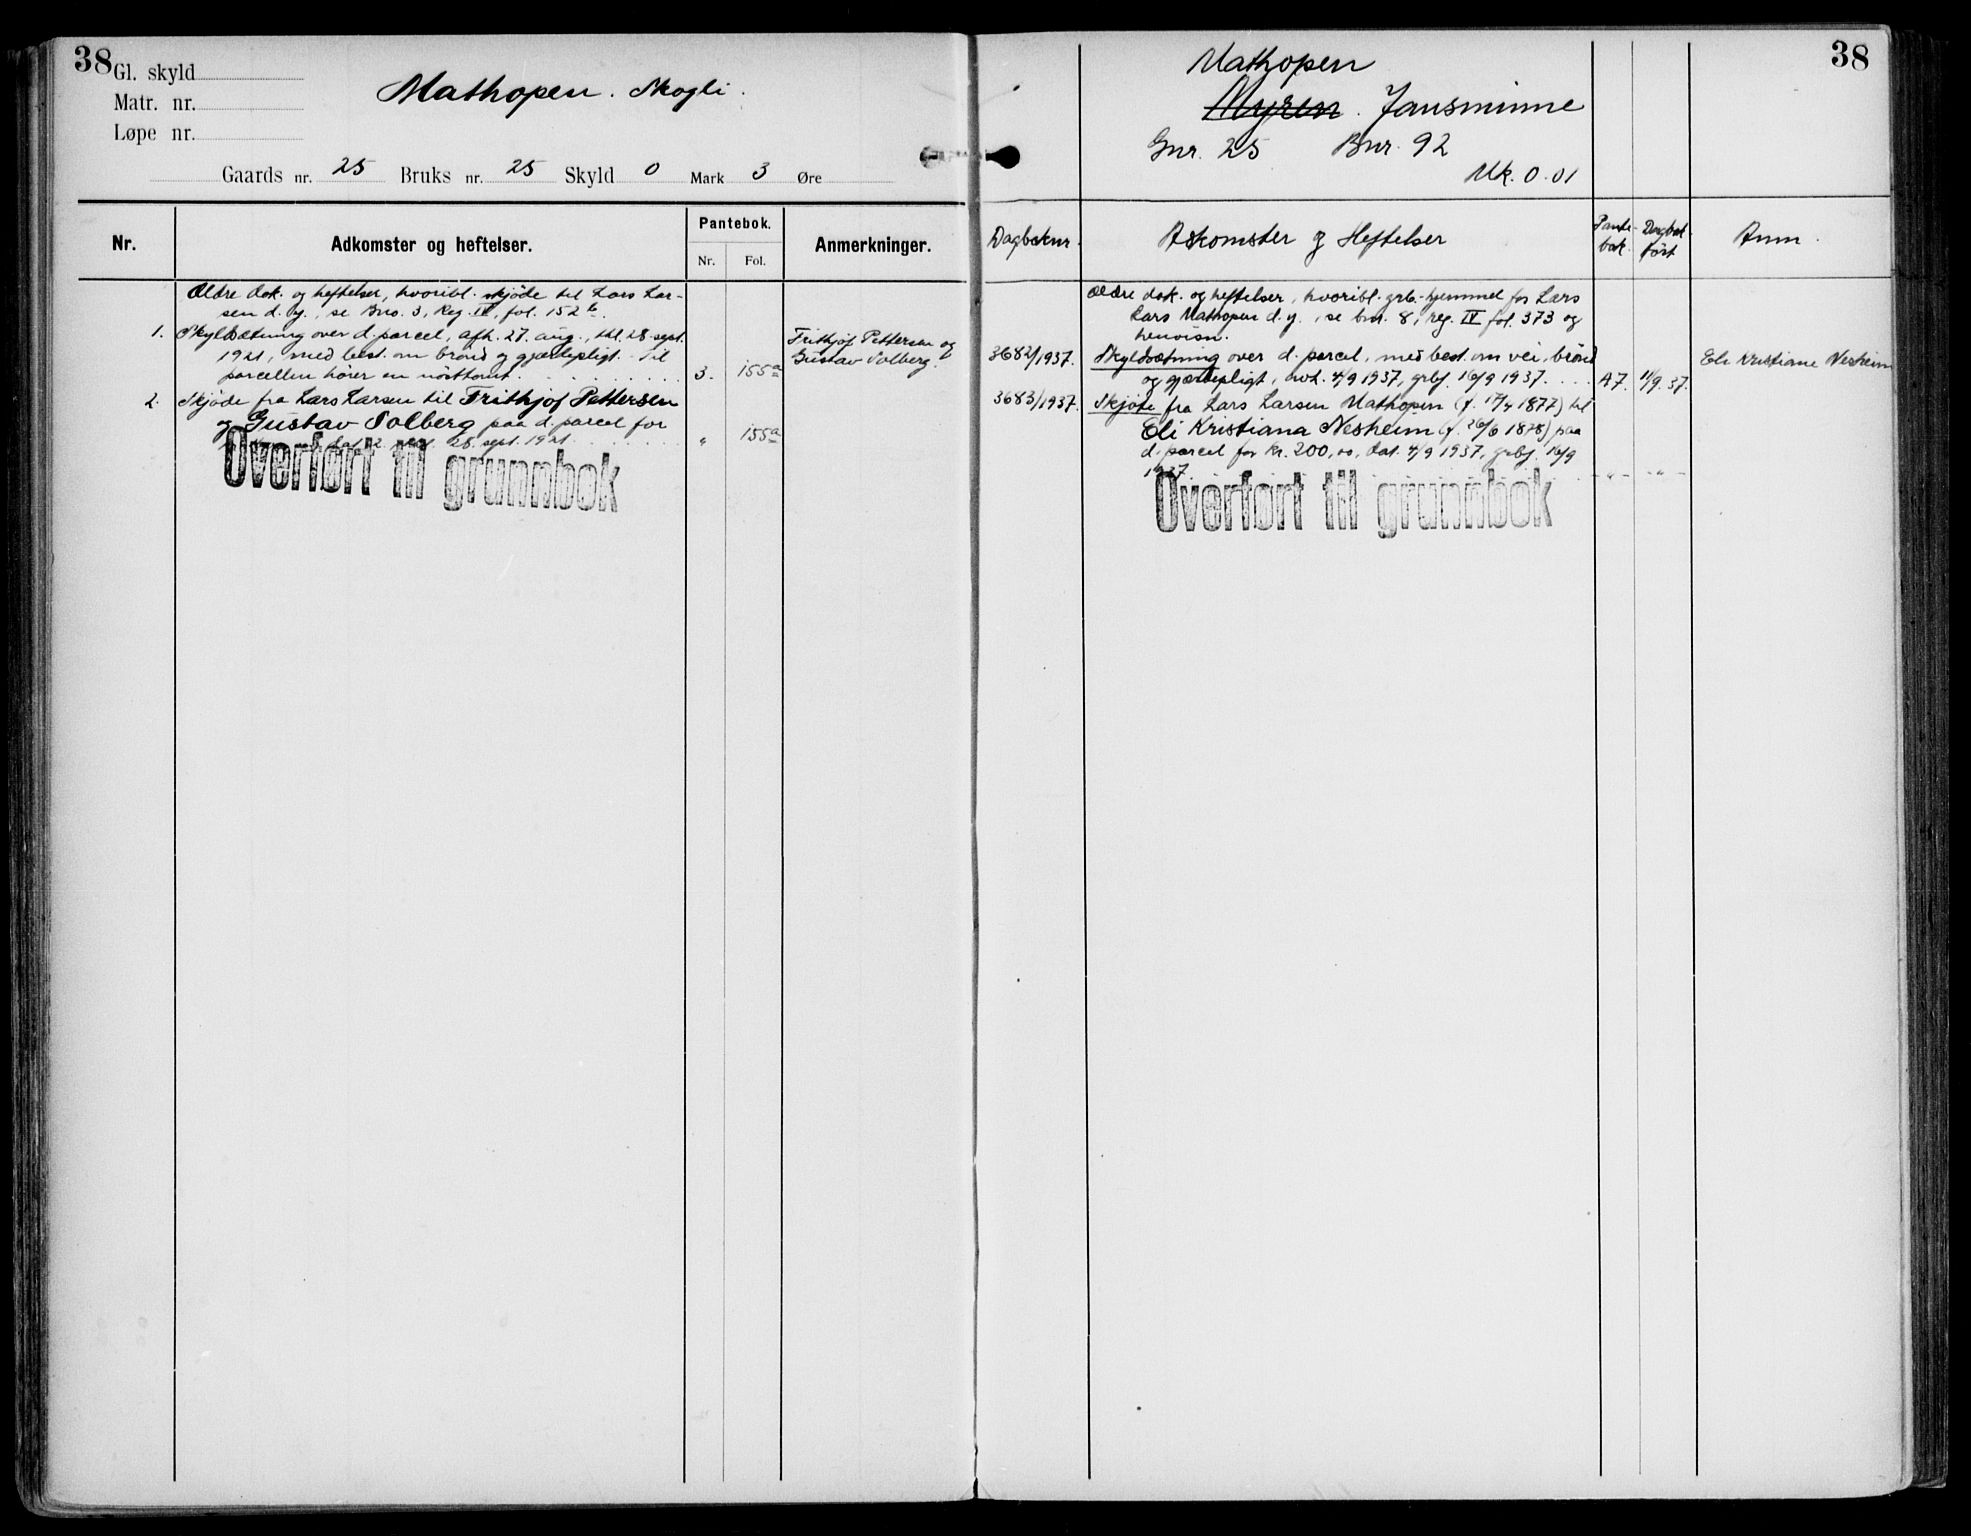 38
Gl. skyld
Matr. nr.
Løpe nr.
Mathopen. Skogli.
Gaards nr. 25 Bruks nr. 25 Skyld 0 Mark 3 Øre
Nr.
Adkomster og heftelser.
Pantebok.
Nr.
Fol.
Anmerkninger.
Ældre dok. og heftelser, hvoribl. skjøde til Lars Lar-
sen d. y., se Bno. 3, Reg. IV, fol. 152 b.
1. Skyldsætning over d. parcel, afh. 27. aug., thl. 28. sept.
1921, med best. om brønd og gjærdepligt. Til
parcellen hører en nøsttomt. 3. 155a
Frithjof Pettersen og
Gustav Solberg.
2. Skjøde fra Lars Larsen til Frithjof Pettersen
og Gustav Solberg paa d. parcel for
28. sept. 1921. " 155a
Overført til grunnbok
38
Mathopen
Myren. Jansminne
Gnr. 25 Bnr. 92
Mk. 0.01
Dagboknr.
Adkomster og Heftelser
Pante-
bok.
Dagbok-
ført
Anm.
Ældre dok. og heftelser, hvoribl. grb.-hjemmel for Lars
Lars Mathopen d. y., se bnr. 8, reg. IV fol. 373 og
henvisn.
3682/1937. Skyldsætning over d. parcel, med best. om vei, brønd
og gjærdepligt, avh. 4/9 1937, grbf. 10/9 1937. A7. 11/9.37.
Eli Kristiane Nesheim
3683/1937. Skjøte fra Lars Larsen Mathopen (f. 17/4 1877) til
Eli Kristiana Nesheim (f. 26/6 1878) paa
d. parcel for kr. 200,00, dat. 4/9 1937, grbf. 10/9
1937. - " - - " -
Overført til grunnbok